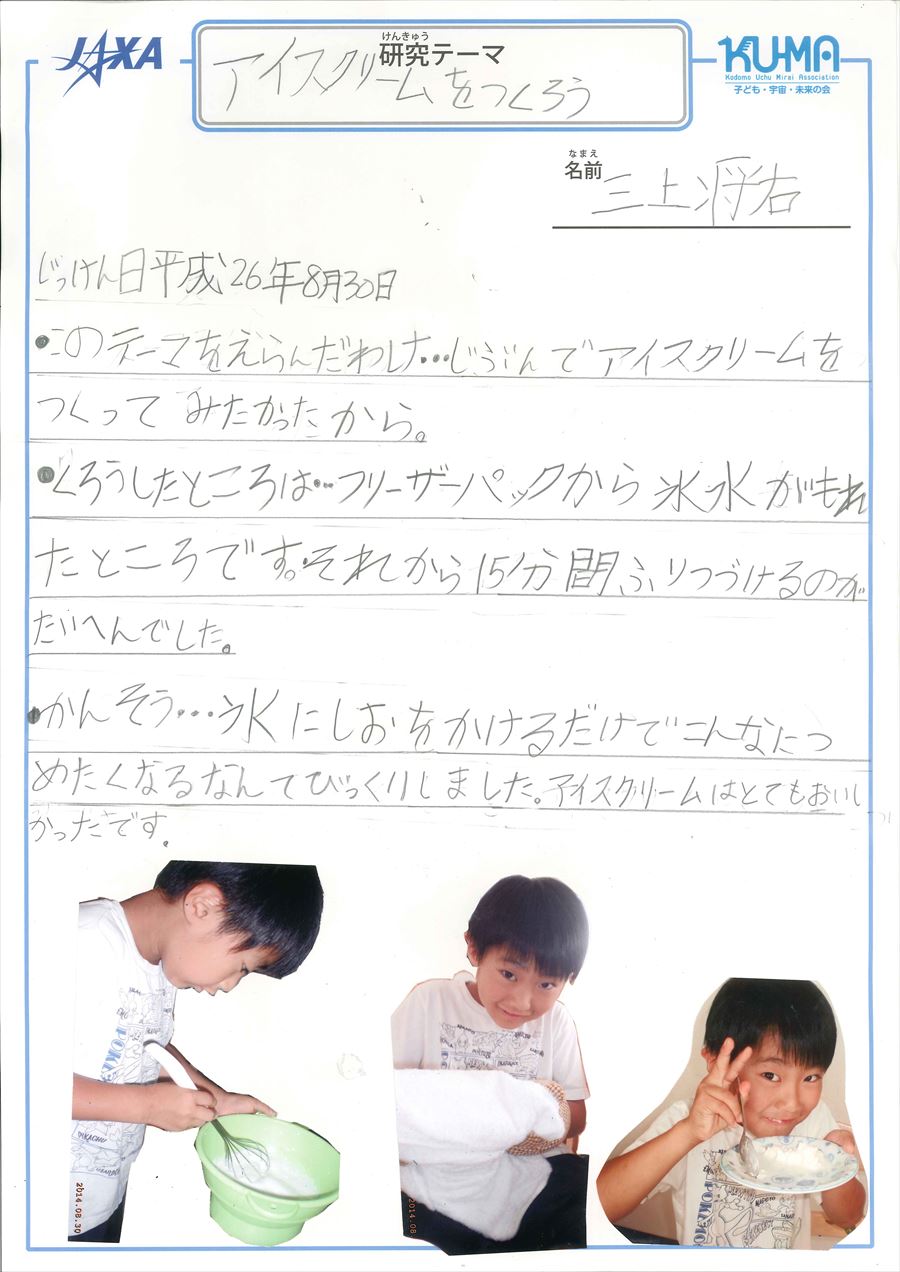 JAXA
けんきゅう
研究テーマ
アイスクリームをつくろう
KU-MA
Kodomo Uchu Mirai Association
子ども・宇宙・未来の会
なまえ
名前 三上将右
じっけん日平成26年8月30日
●このテーマをえらんだわけ…じぶんでアイスクリームを
つくってみたかったから。
●くろうしたところは…フリーザーパックから氷水がもれ
たところです。それから15分間ふりつづけるのが
たいへんでした。
●かんそう…氷にしおをかけるだけでこんなにつ
めたくなるなんてびっくりしました。アイスクリームはとてもおいし
かったです。
POKE
PIKACHU
2014.08.30
2014.08
POKE